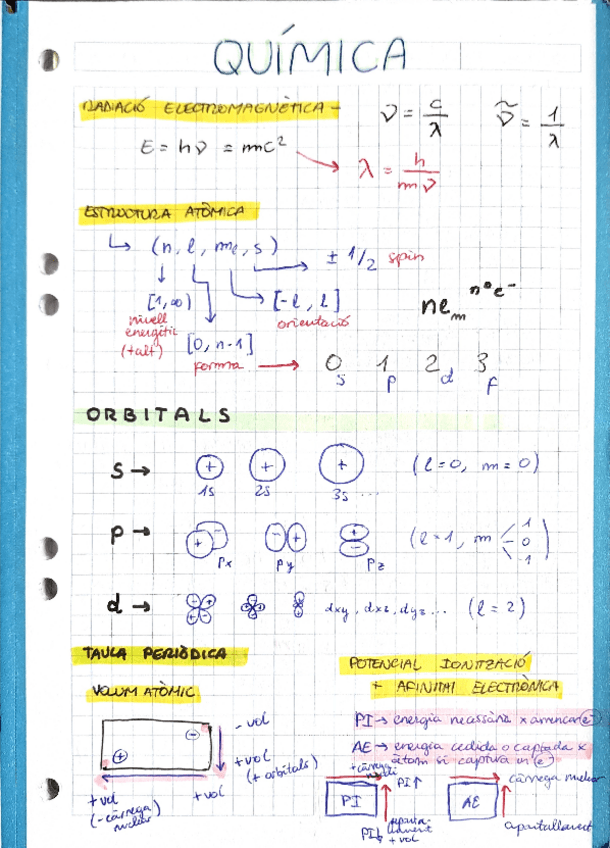 QUÍMICA
RADIACIÓ ELECTROMAGNÈTICA -
ν = c/λ
ν̃ = 1/λ
E = hν = mc²
λ = h/mν
ESTRUCTURA ATÒMICA
(n, l, ml, s)
± 1/2 spin
[1, ∞)
nivell
energètic
(+alt)
[-l, l]
orientació
[0, n-1]
forma
nem nº e-
0 1 2 3
s p d f
ORBITALS
s → + + + (l=0, m=0)
1s 2s 3s ...
p → + - - + + - (l=1, m 1 0 -1)
px py pz
d → dxy, dxz, dyz ... (l=2)
TAULA PERIÒDICA
VOLUM ATÒMIC
+ -
- vol
+ vol
(+ orbitals)
+ vol
(- càrrega
nuclear)
+ vol
POTENCIAL IONITZACIÓ
+ AFINITAT ELECTRÒNICA
PI → energia necessària x arrencar e-
AE → energia cedida o captada x
àtom si captura un e-
+ càrrega
PI
PI ↑
PI↓
+ vol
AE
càrrega nuclear
apantallament